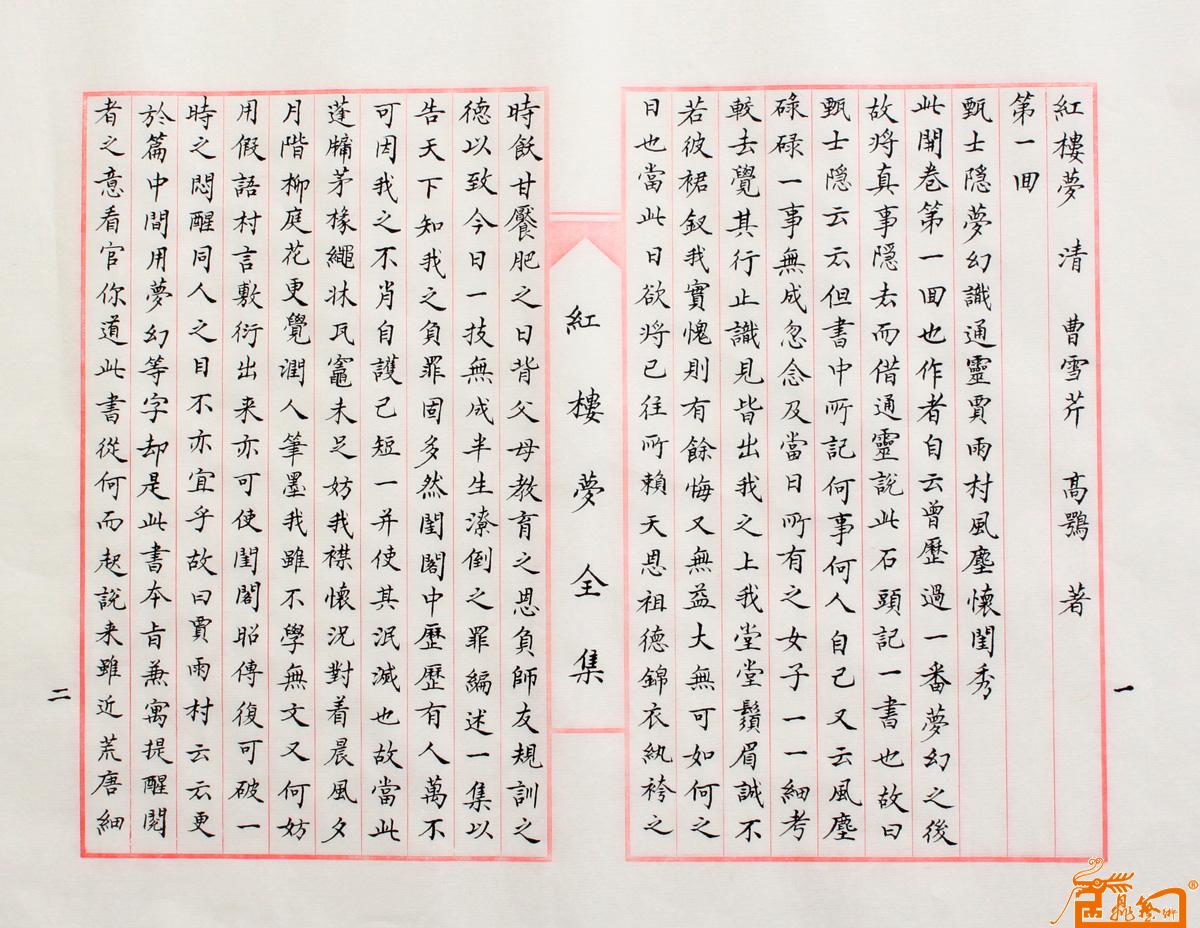 紅樓夢 清 曹雪芹 高鶚 著
第一回
甄士隱夢幻識通靈賈雨村風塵懷閨秀
此開卷第一回也作者自云曾歷過一番夢幻之後
故將真事隱去而借通靈說此石頭記一書也故曰
甄士隱云云但書中所記何事何人自己又云風塵
碌碌一事無成忽念及當日所有之女子一一細考
較去覺其行止識見皆出我之上我堂堂鬚眉誠不
若彼裙釵我實愧則有餘悔又無益大無可如何之
日也當此日欲將已往所賴天恩祖德錦衣紈袴之
一
紅樓夢全集
時飫甘饜肥之日背父母教育之恩負師友規訓之
德以致今日一技無成半生潦倒之罪編述一集以
告天下知我之負罪固多然閨閣中歷歷有人萬不
可因我之不肖自護己短一并使其泯滅也故當此
蓬牗茅椽繩牀瓦竈未足妨我襟懷況對着晨風夕
月階柳庭花更覺潤人筆墨我雖不學無文又何妨
用假語村言敷衍出来亦可使閨閣昭傳復可破一
時之悶醒同人之目不亦宜乎故曰賈雨村云云更
於篇中間用夢幻等字却是此書本旨兼寓提醒閱
者之意看官你道此書從何而起說来雖近荒唐細
二